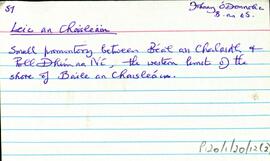 51
Johnny O'Donnell
B. na nS.
Leic an Chaisleáin
Small promontory between Béal an Chaladh &
Poll Dhúin na Ní, the western limit of the
shore of Baile an Chaisleáin.
P20/1/20/12(3)